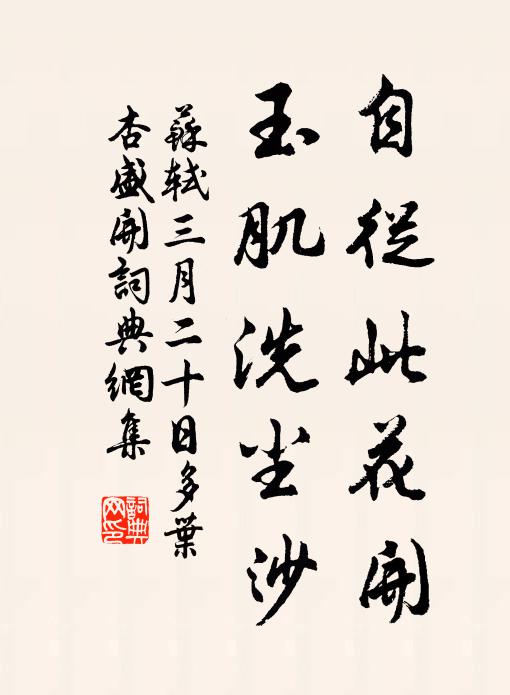 自從此花開
玉肌洗尘沙
蘇軾三月二十日多葉
杏盛開詞典網集
詞典
网印